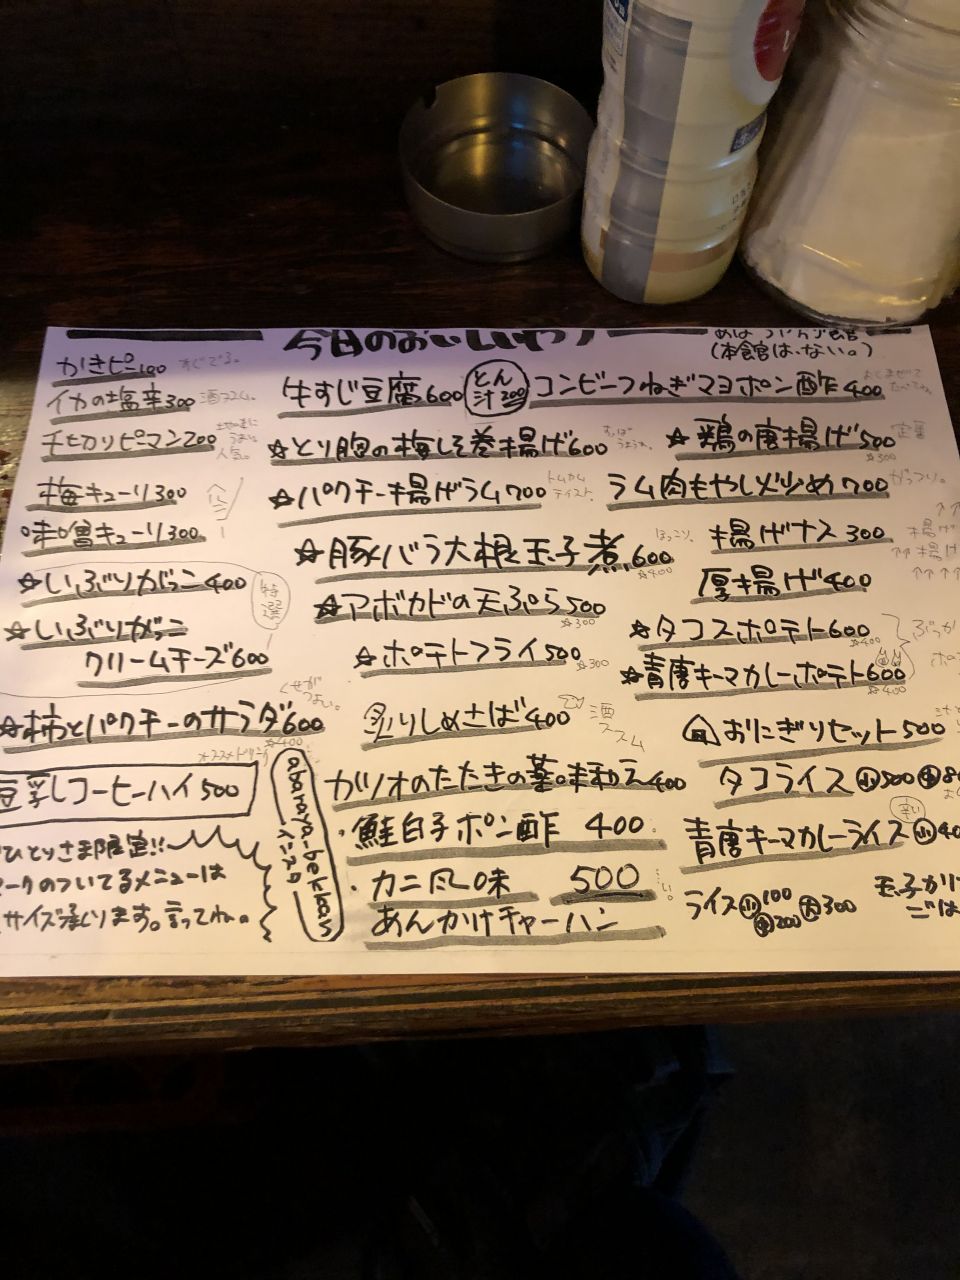 今日のおいしいやつ
(本食官は、ない。)
かきピー100 すぐでる。
イカの塩辛300 酒ススム。
チヒカリピマン200
人気。
梅キューリ300
味噌キューリ300
☆いぶりがっこ400
特選
☆いぶりがっこ
クリームチーズ600
くせが
つよい。
☆柿とパクチーのサラダ600
☆400
オススメドリンク
豆乳しコーヒーハイ500
ひとりさま限定!!
マークのついてるメニューは
サイズ承ります。言ってね。
abaraya-bekkan
インスタ
牛すじ豆腐600
とん
汁200
コンビーフねぎマヨポン酢400
☆とり胸の梅しそ巻揚げ600
☆鶏の唐揚げ500 定番
☆300
☆パクチー揚げラム700
トムヤム
テイスト。
ラム肉もやし炒め700 がっつり。
☆豚バラ大根玉子煮600 ほっこり。
☆400
揚げナス300
☆アボカドの天ぷら500
☆300
厚揚げ400
☆ポテトフライ500
☆300
☆タコスポテト600
☆400
☆青唐キーマカレーポテト600
☆400
炙りしめさば400
酒
ススム
おにぎりセット500
ガツオのたたきの薬味和え400
タコライス小500
・鮭白子ポン酢 400
辛い
青唐キーマカレーライス小
・カニ風味 500
あんかけチャーハン
ライス小100
中200 大300
玉子かけ
ごは